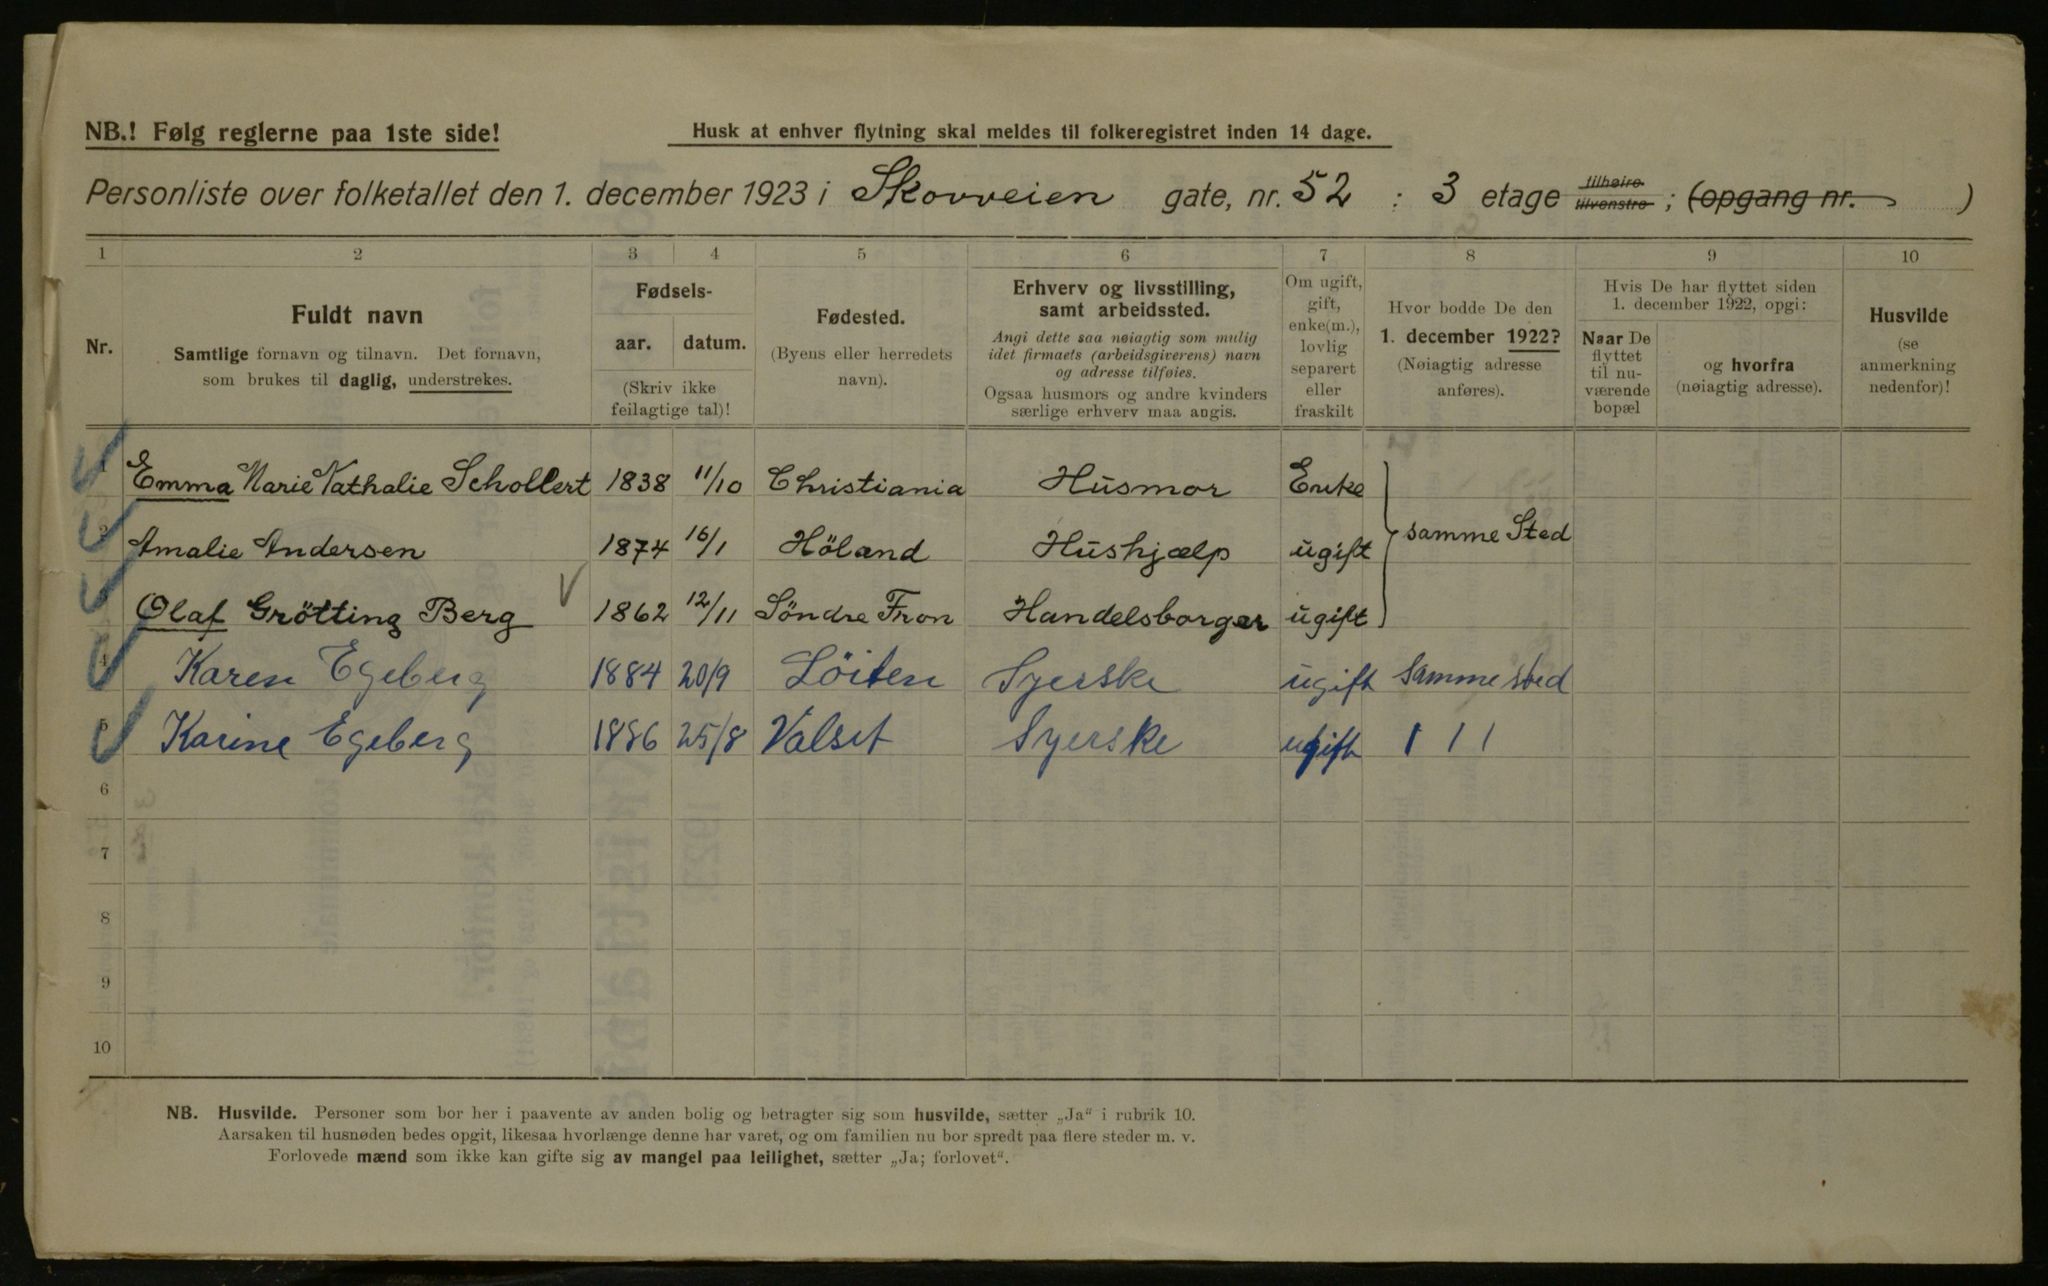 NB.! Følg reglerne paa 1ste side!
Husk at enhver flytning skal meldes til folkeregistret inden 14 dage.
Personliste over folketallet den 1. december 1923 i Skovveien gate, nr. 52 : 3 etage tilhøire tilvenstre ; (opgang nr. )
1 2 3 4 5 6 7 8 9 10
Nr.
Fuldt navn
Samtlige fornavn og tilnavn. Det fornavn,
som brukes til daglig, understrekes.
Fødsels-
aar. datum.
(Skriv ikke
feilagtige tal)!
Fødested.
(Byens eller herredets
navn).
Erhverv og livsstilling,
samt arbeidssted.
Angi dette saa nøiagtig som mulig
idet firmaets (arbeidsgiverens) navn
og adresse tilføies.
Ogsaa husmors og andre kvinders
særlige erhverv maa angis.
Om ugift,
gift,
enke(m.),
lovlig
separert
eller
fraskilt
Hvor bodde De den
1. december 1922?
(Nøiagtig adresse
anføres).
Hvis De har flyttet siden
1. december 1922, opgi:
Naar De
flyttet
til nu-
værende
bopæl
og hvorfra
(nøiagtig adresse).
Husvilde
(se
anmerkning
nedenfor)!
1 Emma Marie Nathalie Schollert 1838 11/10 Christiania Husmor Enke
2 Amalie Andersen 1874 16/1 Höland Hushjælp ugift samme Sted
Olaf Grötting Berg 1862 12/11 Söndre Fron Handelsborger ugift
4 Karen Egeberg 1884 20/9 Löiten Syerske ugift Samme sted
5 Karine Egeberg 1886 25/8 Valset Syerske ugift 1 1 1
6
7
8
9
10
NB. Husvilde. Personer som bor her i paavente av anden bolig og betragter sig som husvilde, sætter „Ja“ i rubrik 10.
Aarsaken til husnøden bedes opgit, likesaa hvorlænge denne har varet, og om familien nu bor spredt paa flere steder m. v.
Forlovede mænd som ikke kan gifte sig av mangel paa leilighet, sætter „Ja; forlovet“.